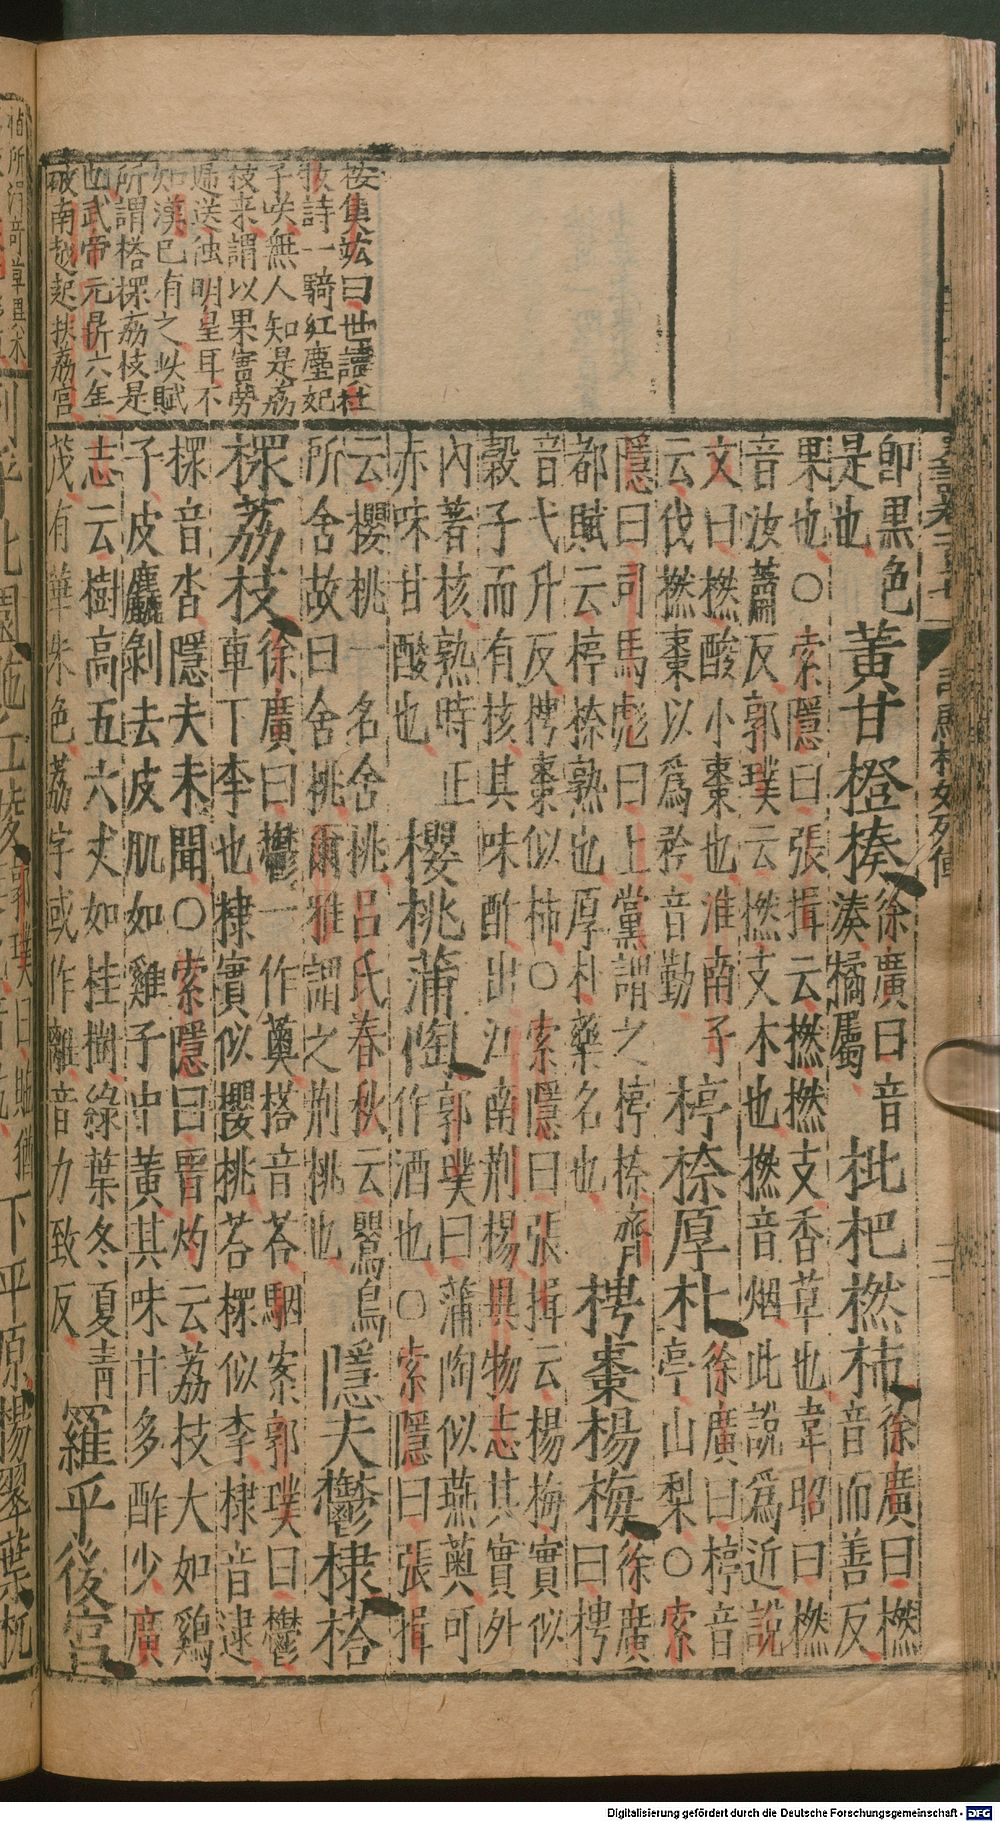 按焦竑曰世讀杜
牧詩一騎紅塵妃
子咲無人知是荔
枝来謂以果實勞
逓送徃明皇耳不
知漢已有之此賦
所謂榙㯚荔枝是
也武帝元鼎六年
破南越起扶荔宮
司馬相如列傳
卽黑色
是也
黃甘橙楱
徐廣曰音
湊橘屬
枇杷橪柿
徐廣曰橪
音而善反
果也○索隱曰張揖云橪橪支香草也韋昭曰橪
音汝蕭反郭璞云橪支木也橪音烟此說爲近說
文曰橪酸小棗也淮南子
云伐橪棗以爲矜音勤
楟㮈厚朴
徐廣曰楟音
亭山梨○索
隱曰司馬彪曰上黨謂之楟㮈齊
都賦云楟㮈熟也厚朴藥名也
梬棗楊梅
徐廣
曰梬
音弋升反梬棗似柿○索隱曰張揖云楊梅實似
榖子而有核其味酢出江南荆楊異物志其實外
內著核熟時正
赤味甘酸也
櫻桃蒲陶
郭璞曰蒲陶似燕薁可
作酒也○索隱曰張揖
云櫻桃一名舍桃呂氏春秋云鸎鳥
所舍故曰舍桃爾雅謂之荆桃也
隱夫鬱棣榙
㯚荔枝
徐廣曰鬱一作薁榙音荅駰案郭璞曰鬱
車下李也棣實似櫻桃荅㯚似李棣音逮
㯚音沓隱夫未聞○索隱曰晋灼云荔枝大如鷄
子皮麤剝去皮肌如雞子中黃其味甘多酢少廣
志云樹高五六丈如桂樹綠葉冬夏靑
茂有華朱色荔字或作離音力致反
羅乎後宮
列乎北園貤丘陵
郭璞曰貤猶
下乎平原揚翠葉杌
Digitalisierung gefördert durch die Deutsche Forschungsgemeinschaft - DFG